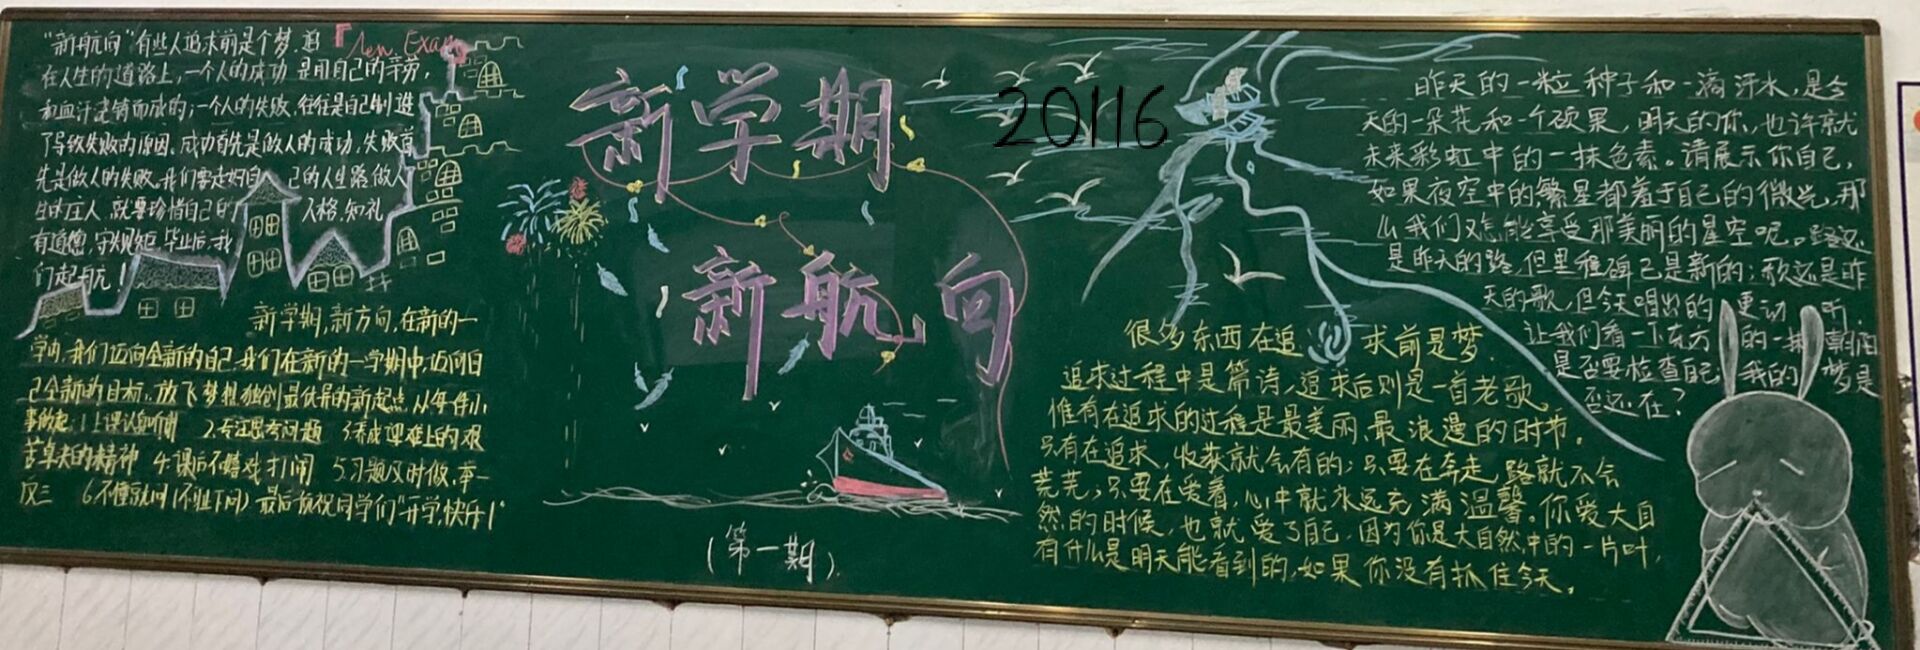 "新航向"有些人追求前是个梦，追
在人生的道路上，一个人的成功 是用自己的辛劳，
和血汗浇铸而成的；一个人的失败，往往是自己制造
了导致失败的原因。成功首先是做人的成功，失败首
先是做人的失败。我们要走好自己的人生路，做人
生的主人，就要珍惜自己的人格，知礼
有道德，守规矩 毕业后，我
们起航！
新学期，新方向，在新的一
学内，我们迈向全新的自己，我们在新的一学期中，迈向自
己全新的目标，放飞梦想独创最优异的新起点，从每件小
事做起：1.上课认真听讲 2.专注思考问题 3.养成课堂上的艰
苦卓夫的精神 4.课后不嬉戏打闹 5.习题及时做，举一
反三 6.不懂就问(不耻下问) 最后预祝同学们"开学快乐！"
新学期
新航向
(第一期)
20116
昨天的一粒种子和一滴汗水，是今
天的一朵花和一个硕果，明天的你，也许就
未来彩虹中的一抹色素。请展示你自己，
如果夜空中的繁星都羞于自己的微光，那
么我们又怎能享受那美丽的星空呢。路还
是昨天的路，但里程碑已是新的；歌还是昨
天的歌，但今天唱出的更动听，
让我们看一下东方的一抹朝阳
是否要检查自己，我的梦是
否还在？
很多东西在追求前是梦，
追求过程中是篇诗，追求后则是一首老歌，
惟有在追求的过程是最美丽、最浪漫的时节。
只有在追求，收获就会有的；只要在奔走，路就不会
荒芜；只要在爱着，心中就永远充满温馨。你爱大自
然的时候，也就爱了自己，因为你是大自然中的一片叶，
有什么是明天能看到的，如果你没有抓住今天。